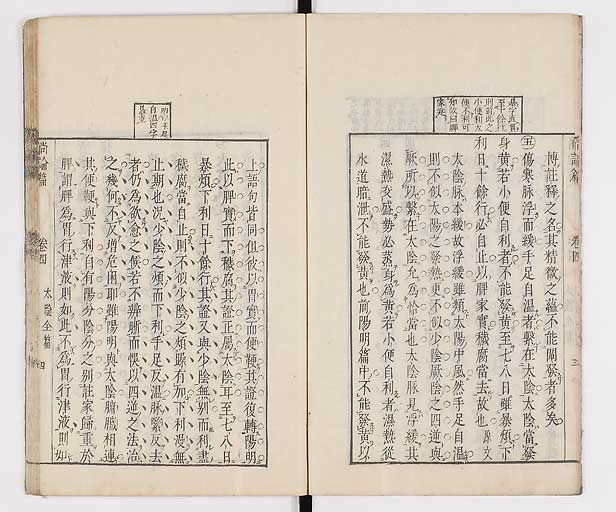 愚字直貫
至十餘行
則前此之
小便利太
便不利可
知故曰脾
家實
尚論篇
卷四
三
博註釋之名其精微之蘊不能闡發者多矣
五傷寒脈浮而緩手足自溫者繫在太陰太陰當發
身黃若小便自利者不能發黃至七八日雖暴煩下
利日十餘行必自止以脾家實穢腐當去故也原文
太陰脈本緩故浮緩雖類太陽中風然手足自溫
則不似太陽之發熱更不似少陰厥陰之四逆與
厥所以繫在太陰允為恰當也太陰脈見浮緩其
濕熱交盛勢必蒸身為黃若小便自利者濕熱從
水道暗泄不能發黃也前陽明篇中不能發黃以
明以手足
自溫四字
為重
上語句皆同但彼以胃實而便鞕其證復轉陽明
此以脾實而下穢腐其證正屬太陰耳至七八日
暴煩下利日十餘行其證又與少陰無別而利盡
穢腐當自止則不似少陰之煩躁有加下利漫無
止期也況少陰之煩而下利手足反溫脈緊反去
者仍為欲愈之候若不辨晰而悞以四逆之法治
之幾何不反增危困耶雖陽明與太陰臟腑相連
其便鞕與下利自有陽分陰分之別註家歸重於
脾謂脾為胃行津液則如此不為胃行津液則如
尚論篇
卷四
太陰全篇
四